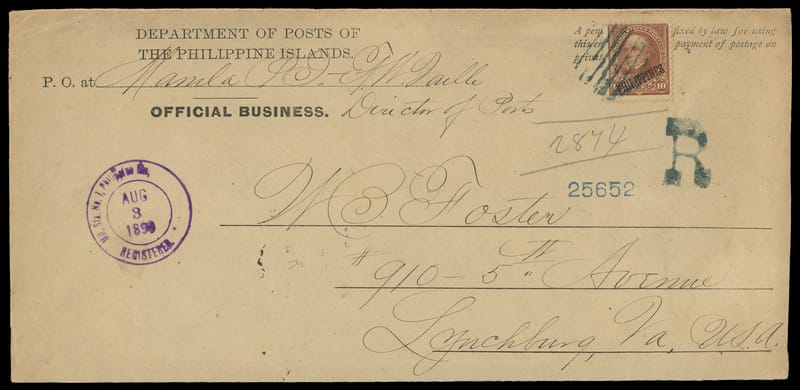 DEPARTMENT OF POSTS OF
THE PHILIPPINE ISLANDS.
P. O. at Manila P.I. - F.W. Vaille
OFFICIAL BUSINESS. Director of Posts
A pen fixed by law for using
this en payment of postage on
priva
PHILIPPINES
10
2874
R
25652
Mil. Sta. No. 1,
AUG
3
1899
REGISTERED.
W. S. Foster
# 910 - 5th Avenue
Lynchburg, Va, U.S.A.